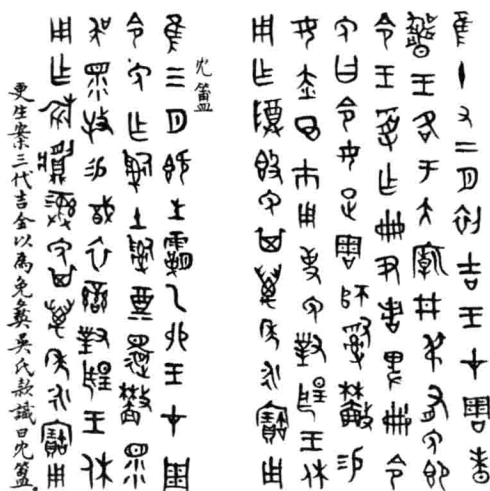 隹十又二月初吉王才周昧
爽王各于大廟井弔又免即
令王受乍冊尹書卑冊令
免曰令女疋周師𤔲易
女赤市用事免對揚王休
用乍尊簋免其萬年永寶用
簠
隹三月既生霸乙卯王才周
令免乍𤔲土𤔲奠還眔
吳眔牧易戠衣䜌對揚王休
用乍旅彝免其萬年永寶用
更生案三代吉金以為免彝吳氏款識曰簠